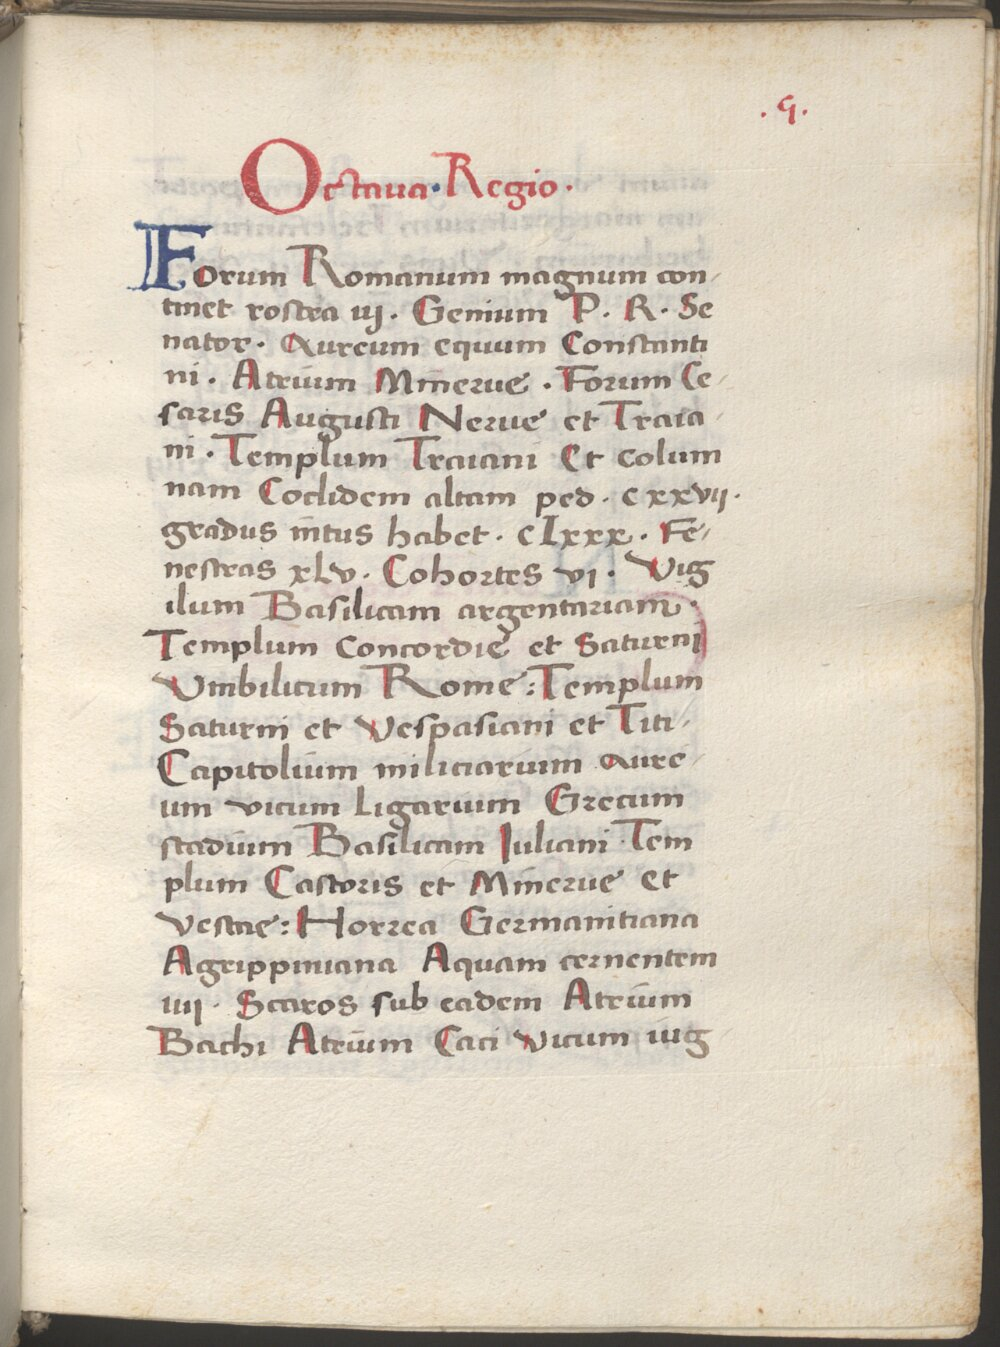 .9.
Octaua · Regio ·
Forum Romanum magnum con-
tinet rostra iij. Genium P. R. Se
nator. Aureum equum Constanti
ni. Atrium Minerue. Forum Ce-
saris Augusti Nerue et Traia-
ni. Templum Traiani Et colum
nam Coclidem altam ped. cxxvij.
gradus intus habet. cIxxx. Fe-
nestras xLv. Cohortes vi. Vig
ilum Basilicam argentariam.
Templum concordie et Saturni
Vmbilicum Rome: Templum
Saturni et Vespasiani et Titi-
Capitolium miliciarium Aure-
um vicum Ligarium Grecum
stadium Basilicam Iuliani Tem
plum Castoris et Minerue Et
Vestae: Horrea Germanitiana
Agrippiniana Aquam cernentem
iiij. Scaros sub eadem Atrium
Bachi Atrium Caci Vicum iug